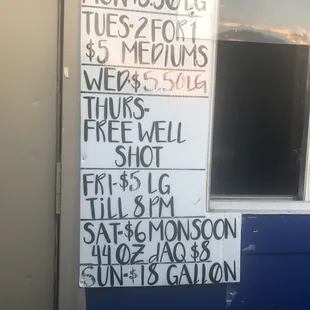 MON-$5.50LG
TUES-2 FOR 1
$5 MEDIUMS
WED-$5.50LG
THURS-
FREE WELL
SHOT
FRI-$5 LG
TILL 8PM
SAT-$6 MONSOON
44 OZ DAQ $8
SUN-$18 GALLON